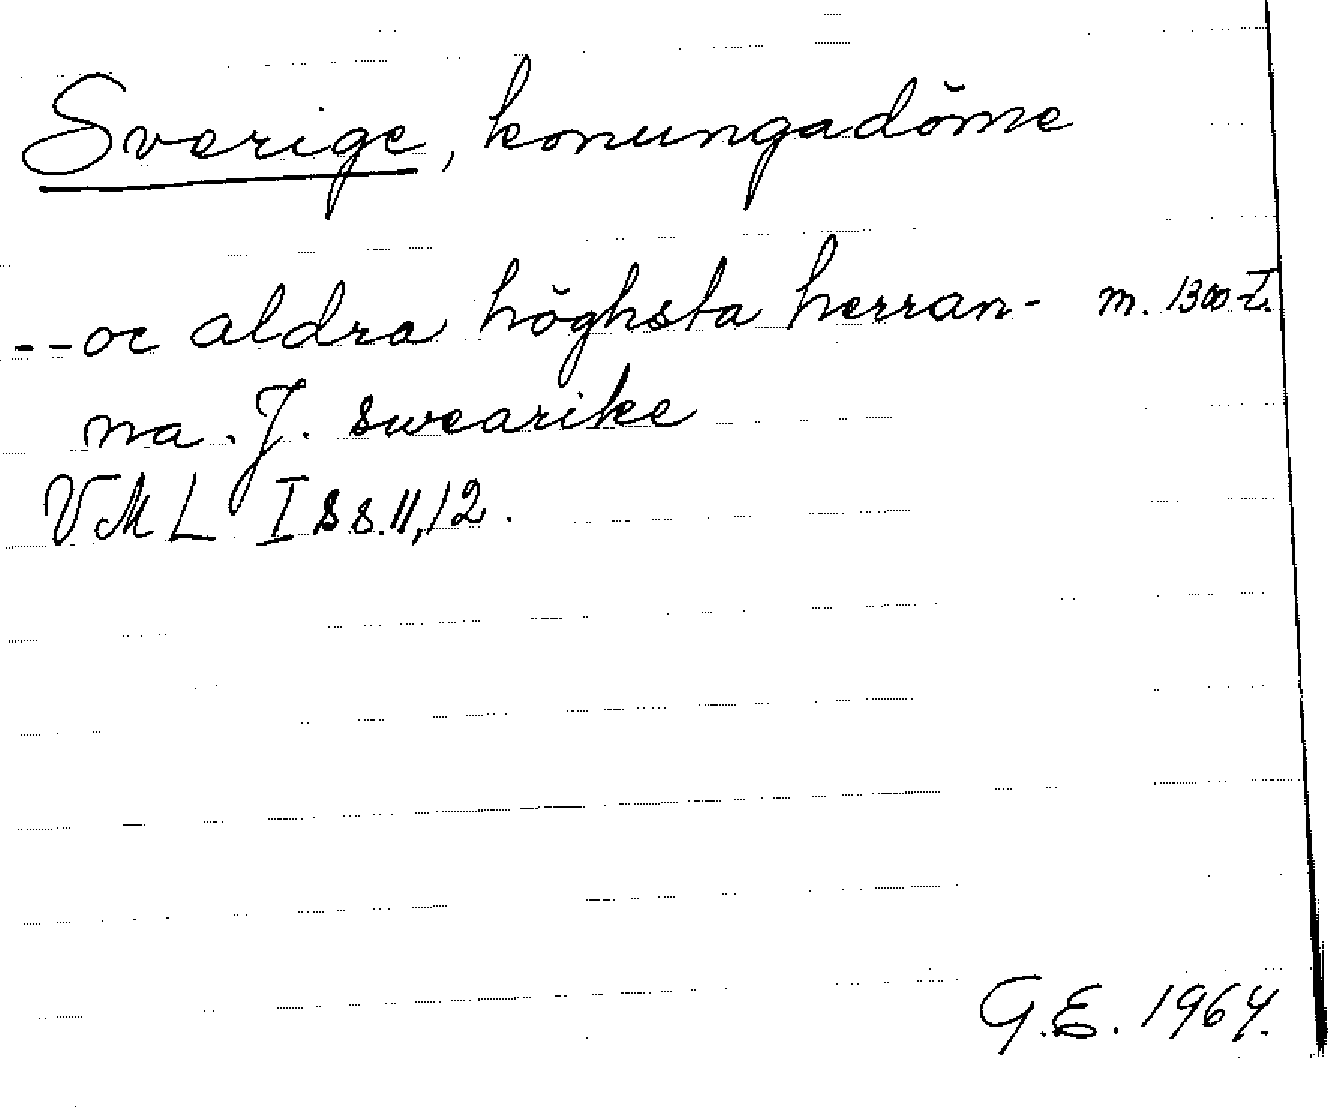 Sverige, konungadöme
--oc aldra höghsta herran- m. 1300-t.
na. J. swearike
VML I ss.11,12.
G.E. 1964.